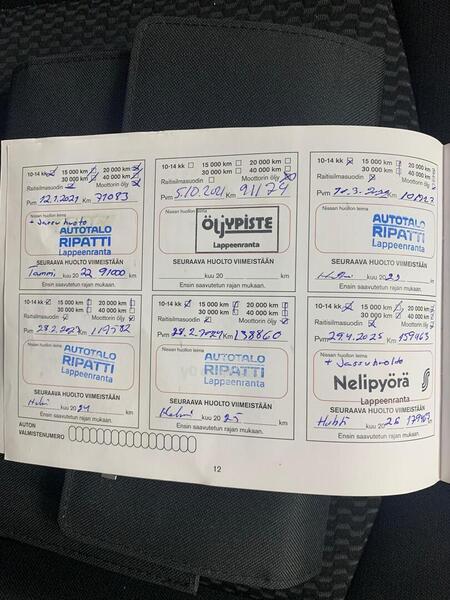 10-14 kk 15 000 km 20 000 km
30 000 km 40 000 km
Raitisilmasuodin Moottorin öljy
Pvm 12.1.2021 Km 71083
Nissan huollon leima
+ Jarruhuolto
AUTOTALO
RIPATTI
Lappeenranta
SEURAAVA HUOLTO VIIMEISTÄÄN
Tammi kuu 20 22 91000 km
Ensin saavutetun rajan mukaan.
10-14 kk 15 000 km 20 000 km
30 000 km 40 000 km
Raitisilmasuodin Moottorin öljy
Pvm 5.10.2021 Km 91174
Nissan huollon leima
ÖLJYPISTE
Lappeenranta
SEURAAVA HUOLTO VIIMEISTÄÄN
kuu 20 km
Ensin saavutetun rajan mukaan.
10-14 kk 15 000 km 20 000 km
30 000 km 40 000 km
Raitisilmasuodin Moottorin öljy
Pvm Km
Nissan huollon leima
AUTOTALO
RIPATTI
Lappeenranta
SEURAAVA HUOLTO VIIMEISTÄÄN
kuu 20 23 km
Ensin saavutetun rajan mukaan.
10-14 kk 15 000 km 20 000 km
30 000 km 40 000 km
Raitisilmasuodin Moottorin öljy
Pvm 28.2.2023 Km 119782
Nissan huollon leima
AUTOTALO
RIPATTI
Lappeenranta
SEURAAVA HUOLTO VIIMEISTÄÄN
Helmi kuu 20 24 km
Ensin saavutetun rajan mukaan.
10-14 kk 15 000 km 20 000 km
30 000 km 40 000 km
Raitisilmasuodin Moottorin öljy
Pvm 28.2.2024 Km 138860
Nissan huollon leima
AUTOTALO
RIPATTI
Lappeenranta
SEURAAVA HUOLTO VIIMEISTÄÄN
Helmi kuu 20 25 km
Ensin saavutetun rajan mukaan.
10-14 kk 15 000 km 20 000 km
30 000 km 40 000 km
Raitisilmasuodin Moottorin öljy
Pvm 29.4.2025 Km 159463
Nissan huollon leima
+ Jarruhuolto
Nelipyörä
Lappeenranta
SEURAAVA HUOLTO VIIMEISTÄÄN
Huhti kuu 20 26 179463 km
Ensin saavutetun rajan mukaan.
AUTON
VALMISTENUMERO
12